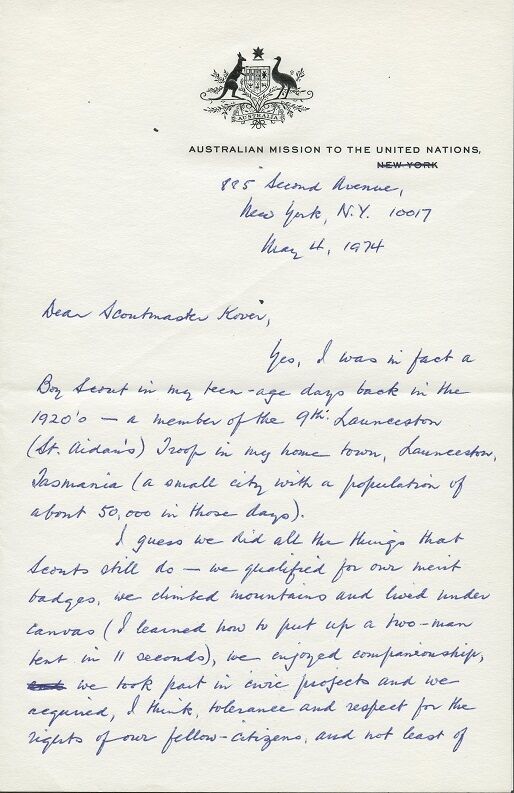 AUSTRALIA
AUSTRALIAN MISSION TO THE UNITED NATIONS,
NEW YORK
825 Second Avenue,
New York, N.Y. 10017
May 4, 1974
Dear Scoutmaster Kover,
Yes, I was in fact a
Boy Scout in my teen-age days back in the
1920's — a member of the 9th Launceston
(St. Aidan's) Troop in my home town, Launceston,
Tasmania (a small city with a population of
about 50,000 in those days).
I guess we did all the things that
Scouts still do — we qualified for our merit
badges, we climbed mountains and lived under
canvas (I learned how to put up a two-man
tent in 11 seconds), we enjoyed companionship,
and we took part in civic projects and we
acquired, I think, tolerance and respect for the
rights of our fellow-citizens, and not least of